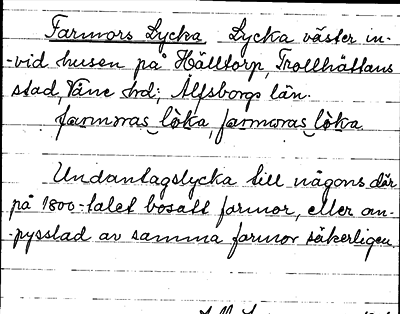 Farmors Lycka Lycka väster in-
-vid husen på Hälltorp, Trollhättans
stad, Väne hrd; Älfsborgs län.
farmoras löka, farmoras löka
Undantagslycka till någons där
på 1800-talet bosatt farmor, eller on-
-pysslad av samma farmor säkerligen.